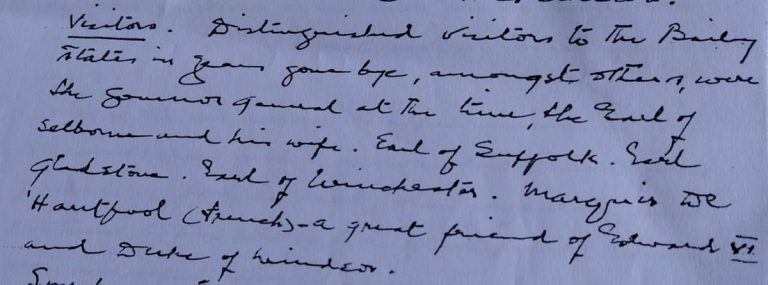 Visitors. Distinguished visitors to the Bailey
states in years gone bye, amongst others, were
the Governor General at the time, the Earl of
Selborne and his wife. Earl of Suffolk. Earl
Gladstone. Earl of Winchester. Marquis de
'Hautpool (French) - a great friend of Edward VI
and Duke of Windsor.